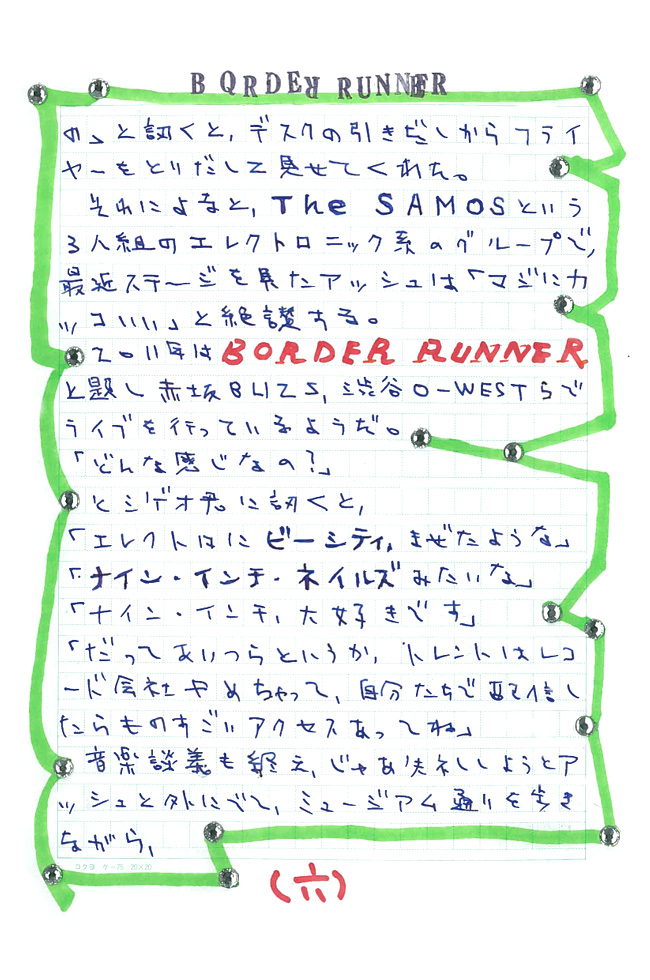 BORDER RUNNER
の」と訊くと，デスクの引きだしからフライ
ヤーをとりだして見せてくれた。
それによると，The SAMOSという
3人組のエレクトロニック系のグループで，
最近ステージを見たアッシュは「マジにカ
ッコいい」と絶讃する。
2011年はBORDER RUNNER
と題し赤坂BLIZS，渋谷O-WESTらで
ライブを行っているようだ。
「どんな感じなの?」
とシゲオ君に訊くと，
「エレクトロはにビーシティ，まぜたような」
「ナイン・インチ・ネイルズみたいな」
「ナイン・インチ，大好きです」
「だってあいつらというか，トレントはレコ
ード会社やめちゃって，自分たちで配信し
たらものすごいアクセスあってね」
音楽談義も終え，じゃあ失礼しようとア
ッシュと外にでて，ミュージアム通りを歩き
ながら，
コクヨ ケー75 20×20
(六)